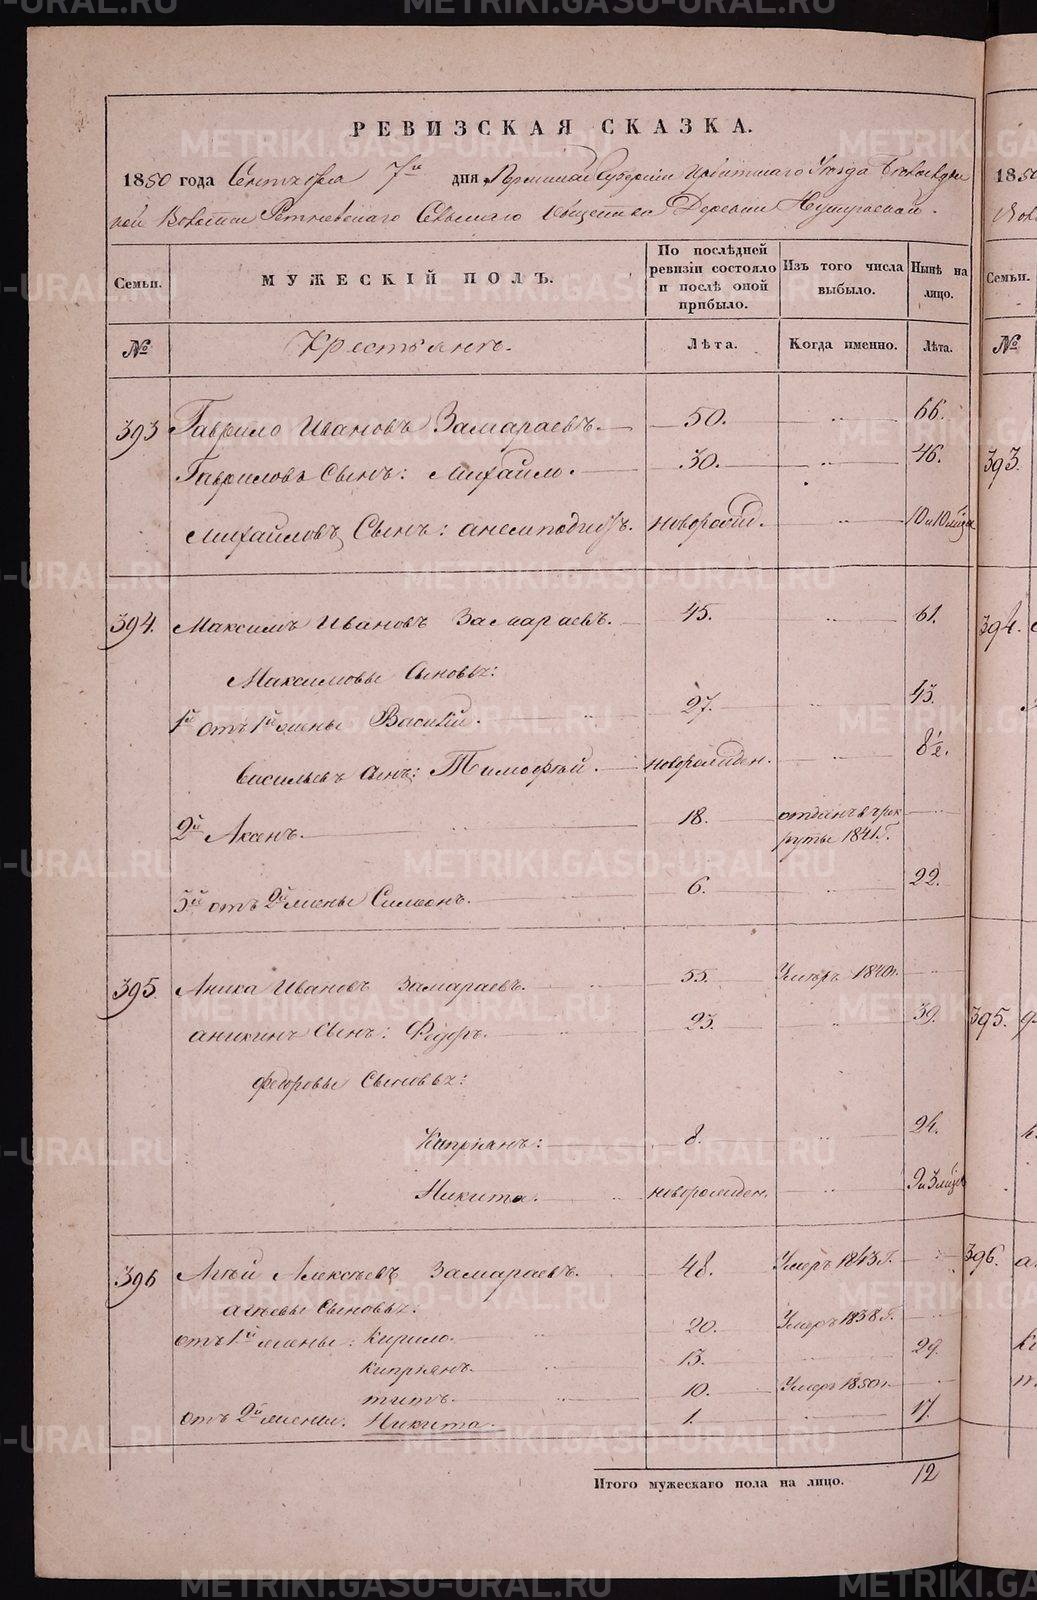 РЕВИЗСКАЯ СКАЗКА.
1850 года Сентября 7го дня Пермской Губернии Ирбитскаго Уезда
Волости Ретневскаго Сельскаго Общества Деревни
Семьи. МУЖЕСКІЙ ПОЛЪ. По послѣдней ревизіи состояло и послѣ оной прибыло. Изъ того числа выбыло. Нынѣ на лицо.
№ Крестьянъ. Лѣта. Когда именно. Лѣта.
393 Гаврило Ивановъ Замараевъ. 50. 66.
Гавриловъ Сынъ: Михайло. 30. 46.
Михайловъ Сынъ: Анемподистъ. новорожд. 10 и 10 мѣся
394. Максимъ Ивановъ Замараевъ. 45. 61.
Максимовы Сыновья:
1й отъ 1й жены Василій. 27. 43.
Васильевъ Сынъ: Тимофѣй. новорожден. 8½.
2й Аксенъ. 18. отданъ в рек
руты 1841 г.
3й отъ 2й жены Симеонъ. 6. 22.
395. Аника Ивановъ Замараевъ. 55. Умеръ 1840 г.
Аникинъ Сынъ: Федоръ. 23. 39.
Федоровы Сыновья:
Кипріянъ: 8. 24.
Никита. новорожден. 9 и 3 мѣся
396 Агѣй Алексѣевъ Замараевъ. 48. Умеръ 1843 г.
Агѣевы Сыновья:
отъ 1й жены: Кирило. 20. Умеръ 1838 г.
Кипріянъ. 13. 29.
Титъ. 10. Умеръ 1850 г.
отъ 2й жены. Никита. 1. 17.
Итого мужескаго пола на лицо. 12
1850
Семьи.
№
393.
394.
395.
396.
METRIKI.GASO-URAL.RU